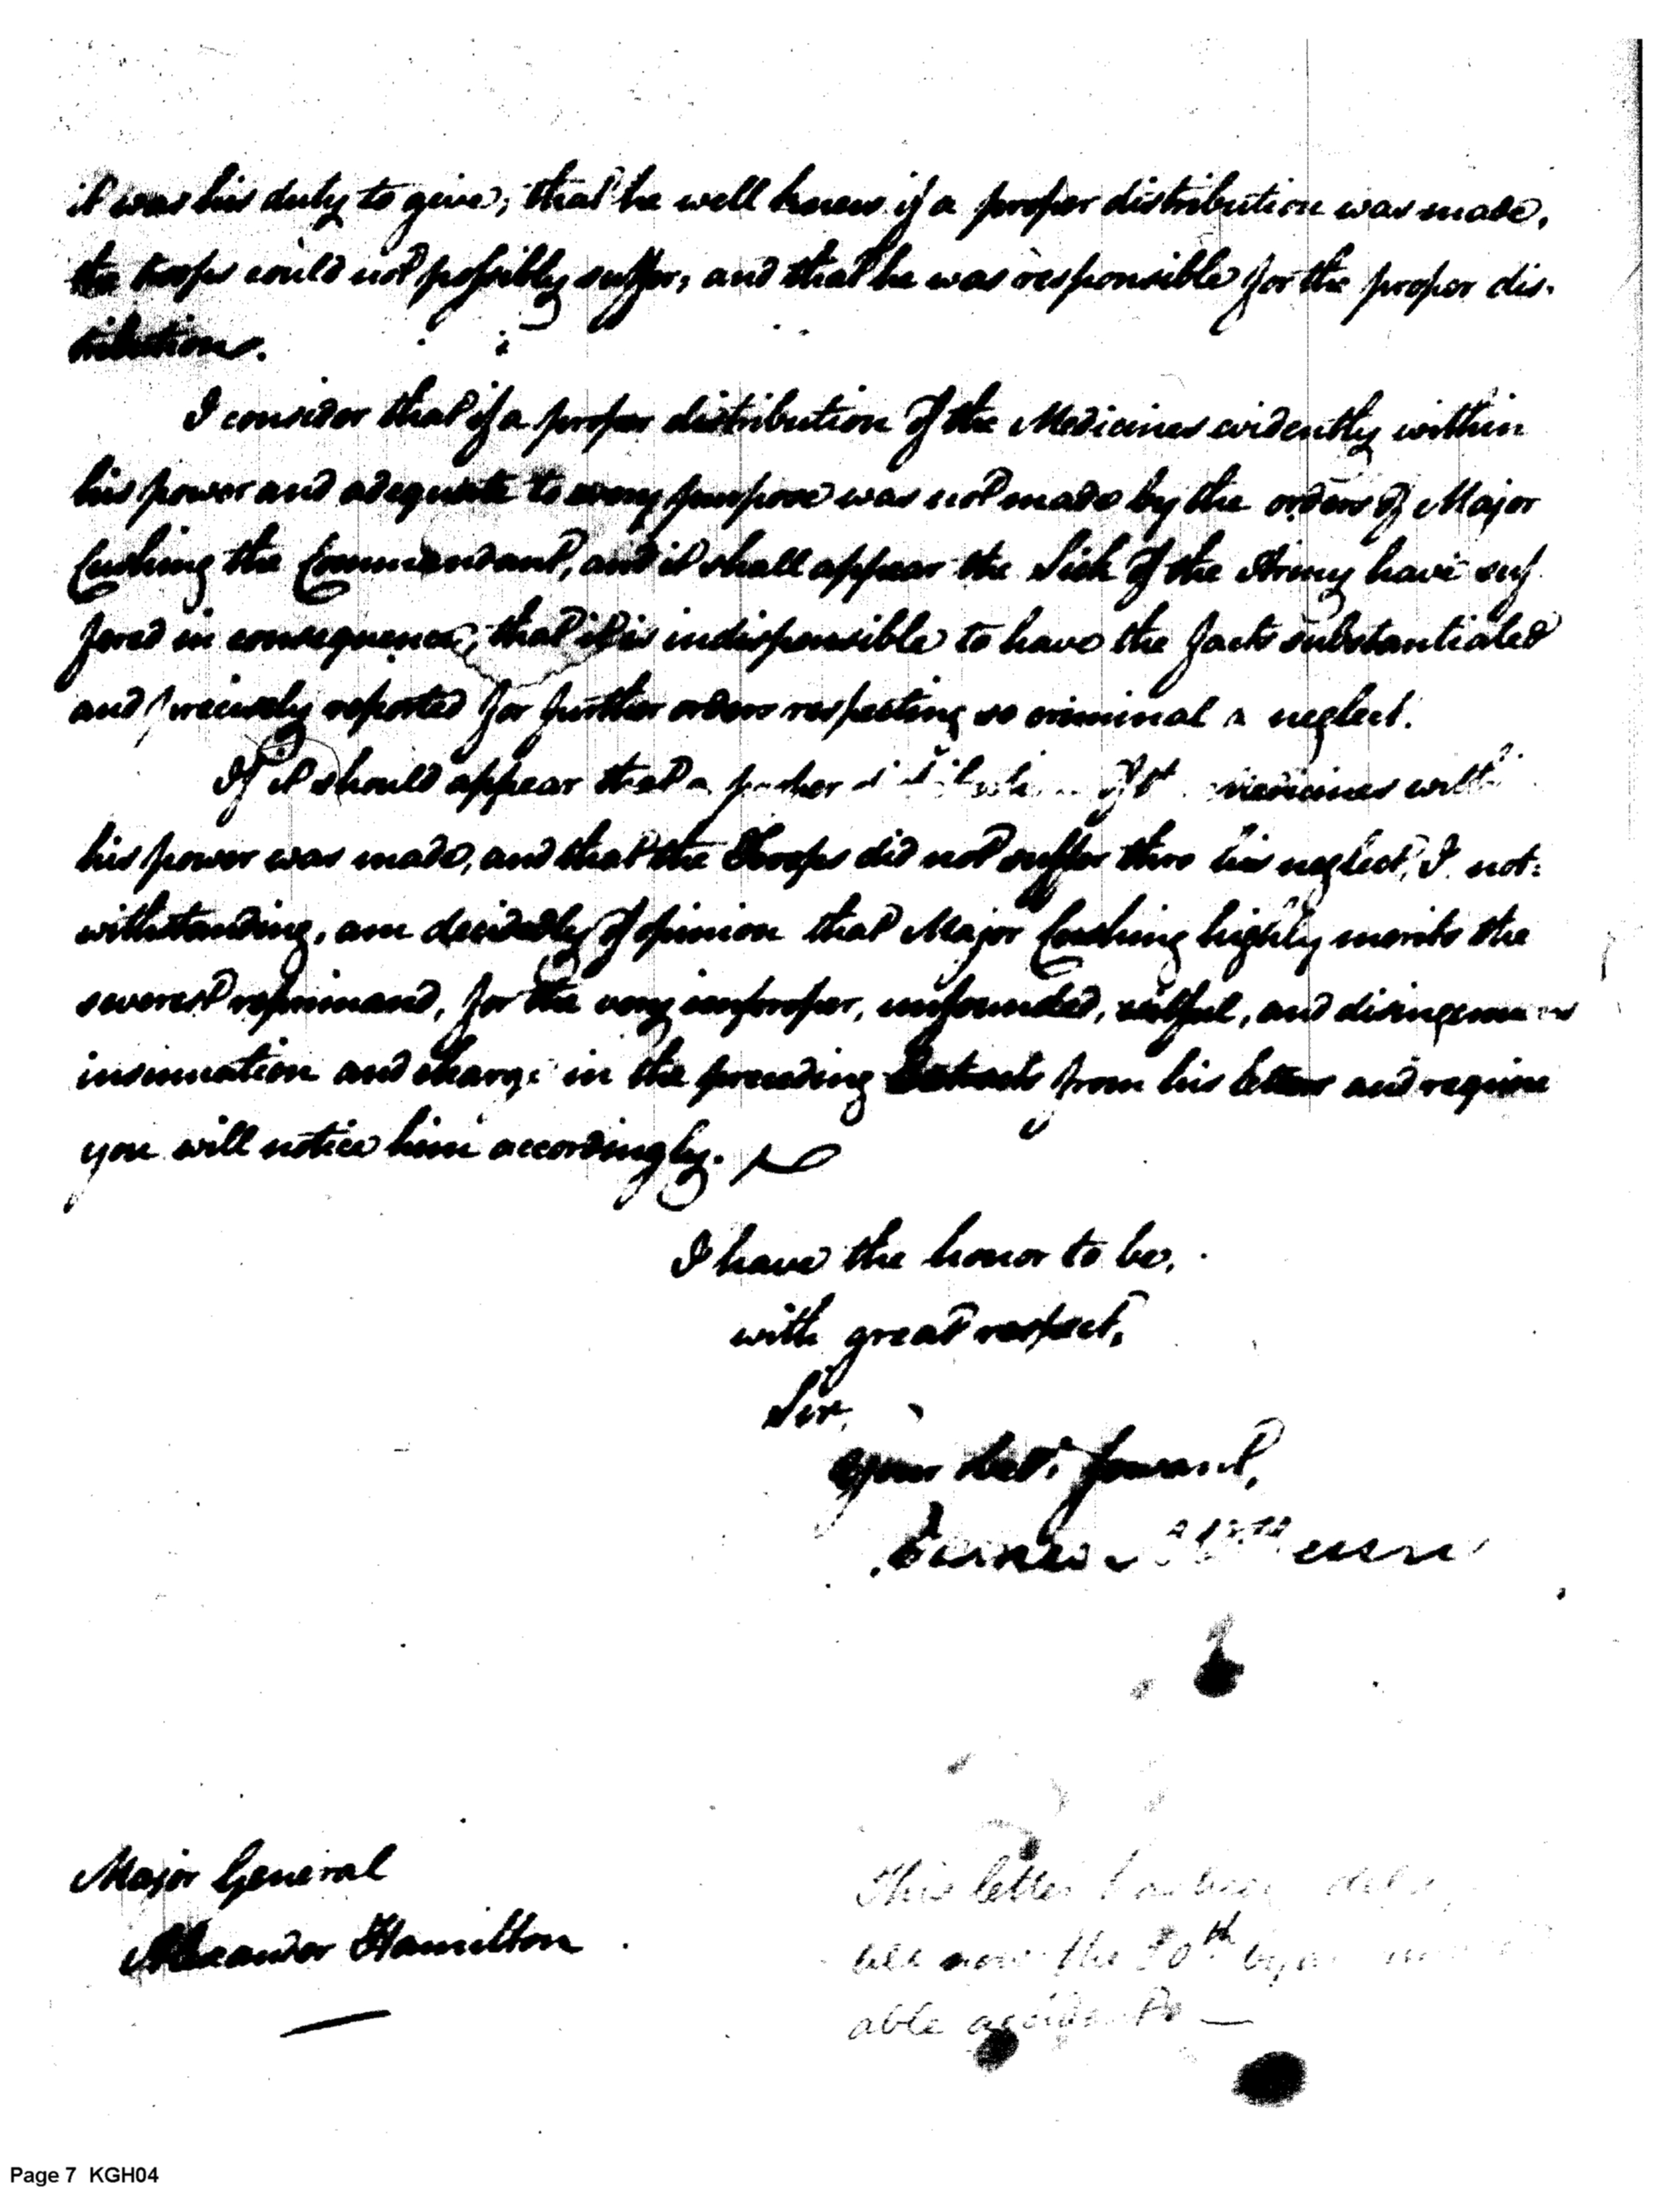 it was his duty to give; that he well knew if a proper distribution was made,
the troops could not possibly suffer, and that he was responsible for the proper dis-
tribution.
I consider that if a proper distribution of the Medicines evidently within
his power and adequate to every purpose was not made by the orders of Major
Cushing the Commandant, and it shall appear the Sick of the Army have suf
fered in consequence, that it is indispensible to have the facts substantiated
and precisely reported for further orders respecting so criminal a neglect.
If it should appear that a proper distribution of medicines
his power was made, and that the Troops did not suffer thro his neglect, I not-
withstanding, am decidedly of opinion that Major Cushing highly merits the
severest reprimand, for the very improper, unfounded, and disingenuous
insinuation and charge in the preceding Extracts from his letters and require
you will notice him accordingly.
I have the honor to be,
with great respect,
Sir,
Your Servant,
James
Major General
Alexander Hamilton
This letter has been
till now the 30th by
able accidents —
Page 7 KGH04